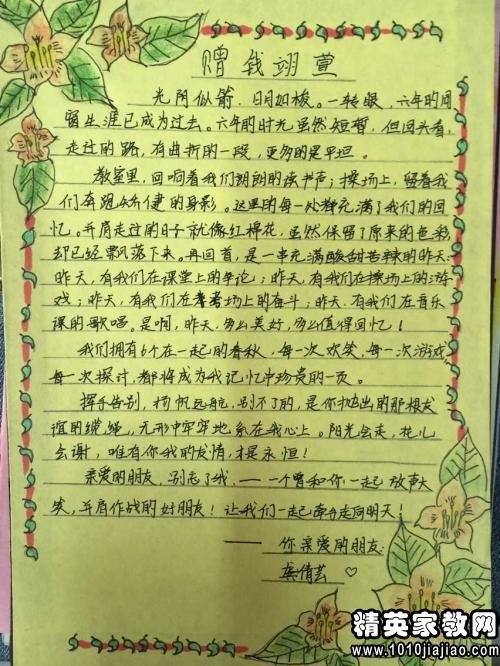 赠钱翊萱
光阴似箭，日月如梭。一转眼，六年的同
窗生涯已成为过去。六年的时光虽然短暂，但回头看，
走过的路，有曲折的一段，更多的是平坦。
教室里，回响着我们朗朗的读书声；操场上，留着我
们奔跑矫健的身影。这里的每一处都充满了我们的回
忆。并肩走过的日子就像红棉花，虽然保留了原来的色彩，
却已经飘落下来。再回首，是一串充满酸甜苦辣的昨天：
昨天，有我们在课堂上的争论；昨天，有我们在操场上的游
戏；昨天，有我们在考场上的奋斗；昨天，有我们在音乐
课的歌唱。是啊，昨天，多么美好，多么值得回忆！
我们拥有6个在一起的春秋，每一次欢笑，每一次游戏，
每一次探讨，都将成为我记忆中珍贵的一页。
挥手告别，扬帆远航，别不了的，是你抛出的那根友
谊的缆绳，无形中牢牢地系在我心上。阳光会走，花儿
会谢，唯有你我的友情才是永恒！
亲爱的朋友，别忘了我，——一个曾和你一起放声大
笑，并肩作战的好朋友！让我们一起牵手走向明天！
——你亲爱的朋友：
龚倩芸
精英家教网
www.1010jiajiao.com